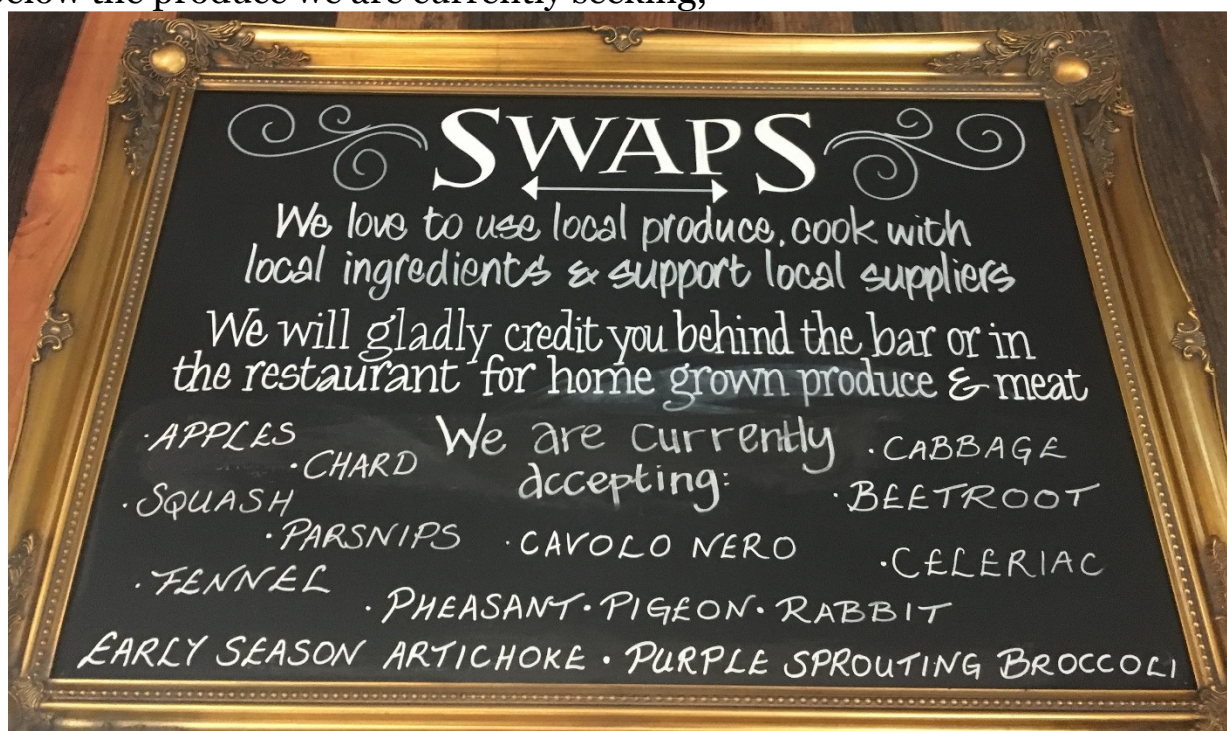 below the produce we are currently seeking;
SWAPS
We love to use local produce, cook with
local ingredients & support local suppliers
We will gladly credit you behind the bar or in
the restaurant for home grown produce & meat
We are currently
accepting:
·APPLES
·CHARD
·SQUASH
·PARSNIPS
·FENNEL
·CAVOLO NERO
·CABBAGE
·BEETROOT
·CELERIAC
·PHEASANT·PIGEON·RABBIT
EARLY SEASON ARTICHOKE·PURPLE SPROUTING BROCCOLI